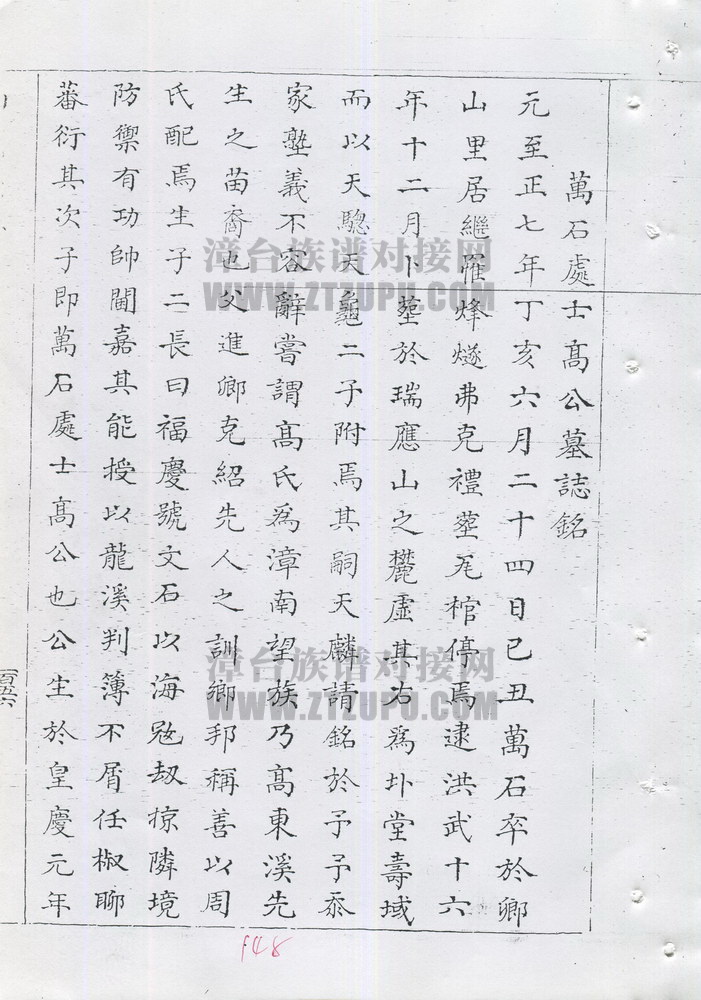 萬石處士髙公墓誌銘
元至正七年丁亥六月二十四日己丑萬石卒於鄉
山里居繼罹烽燧弗克禮塟瓦棺停焉逮洪武十六
年十二月卜塟於瑞應山之麓虛其右為圤堂壽域
而以天驄天龜二子附焉其嗣天麟請銘於予予忝
家塾義不容辭嘗謂髙氏為漳南望族乃髙東溪先
生之苗裔也父進卿克紹先人之訓鄉邦稱善以周
氏配焉生子二長曰福慶號文石以海寇刼掠隣境
防禦有功帥閫嘉其能授以龍溪判簿不屑任椒聊
蕃衍其次子即萬石處士髙公也公生於皇慶元年
一百五六
148
漳台族谱对接网
WWW.ZTZUPU.COM
漳台族谱对接网
WWW.ZTZUPU.COM